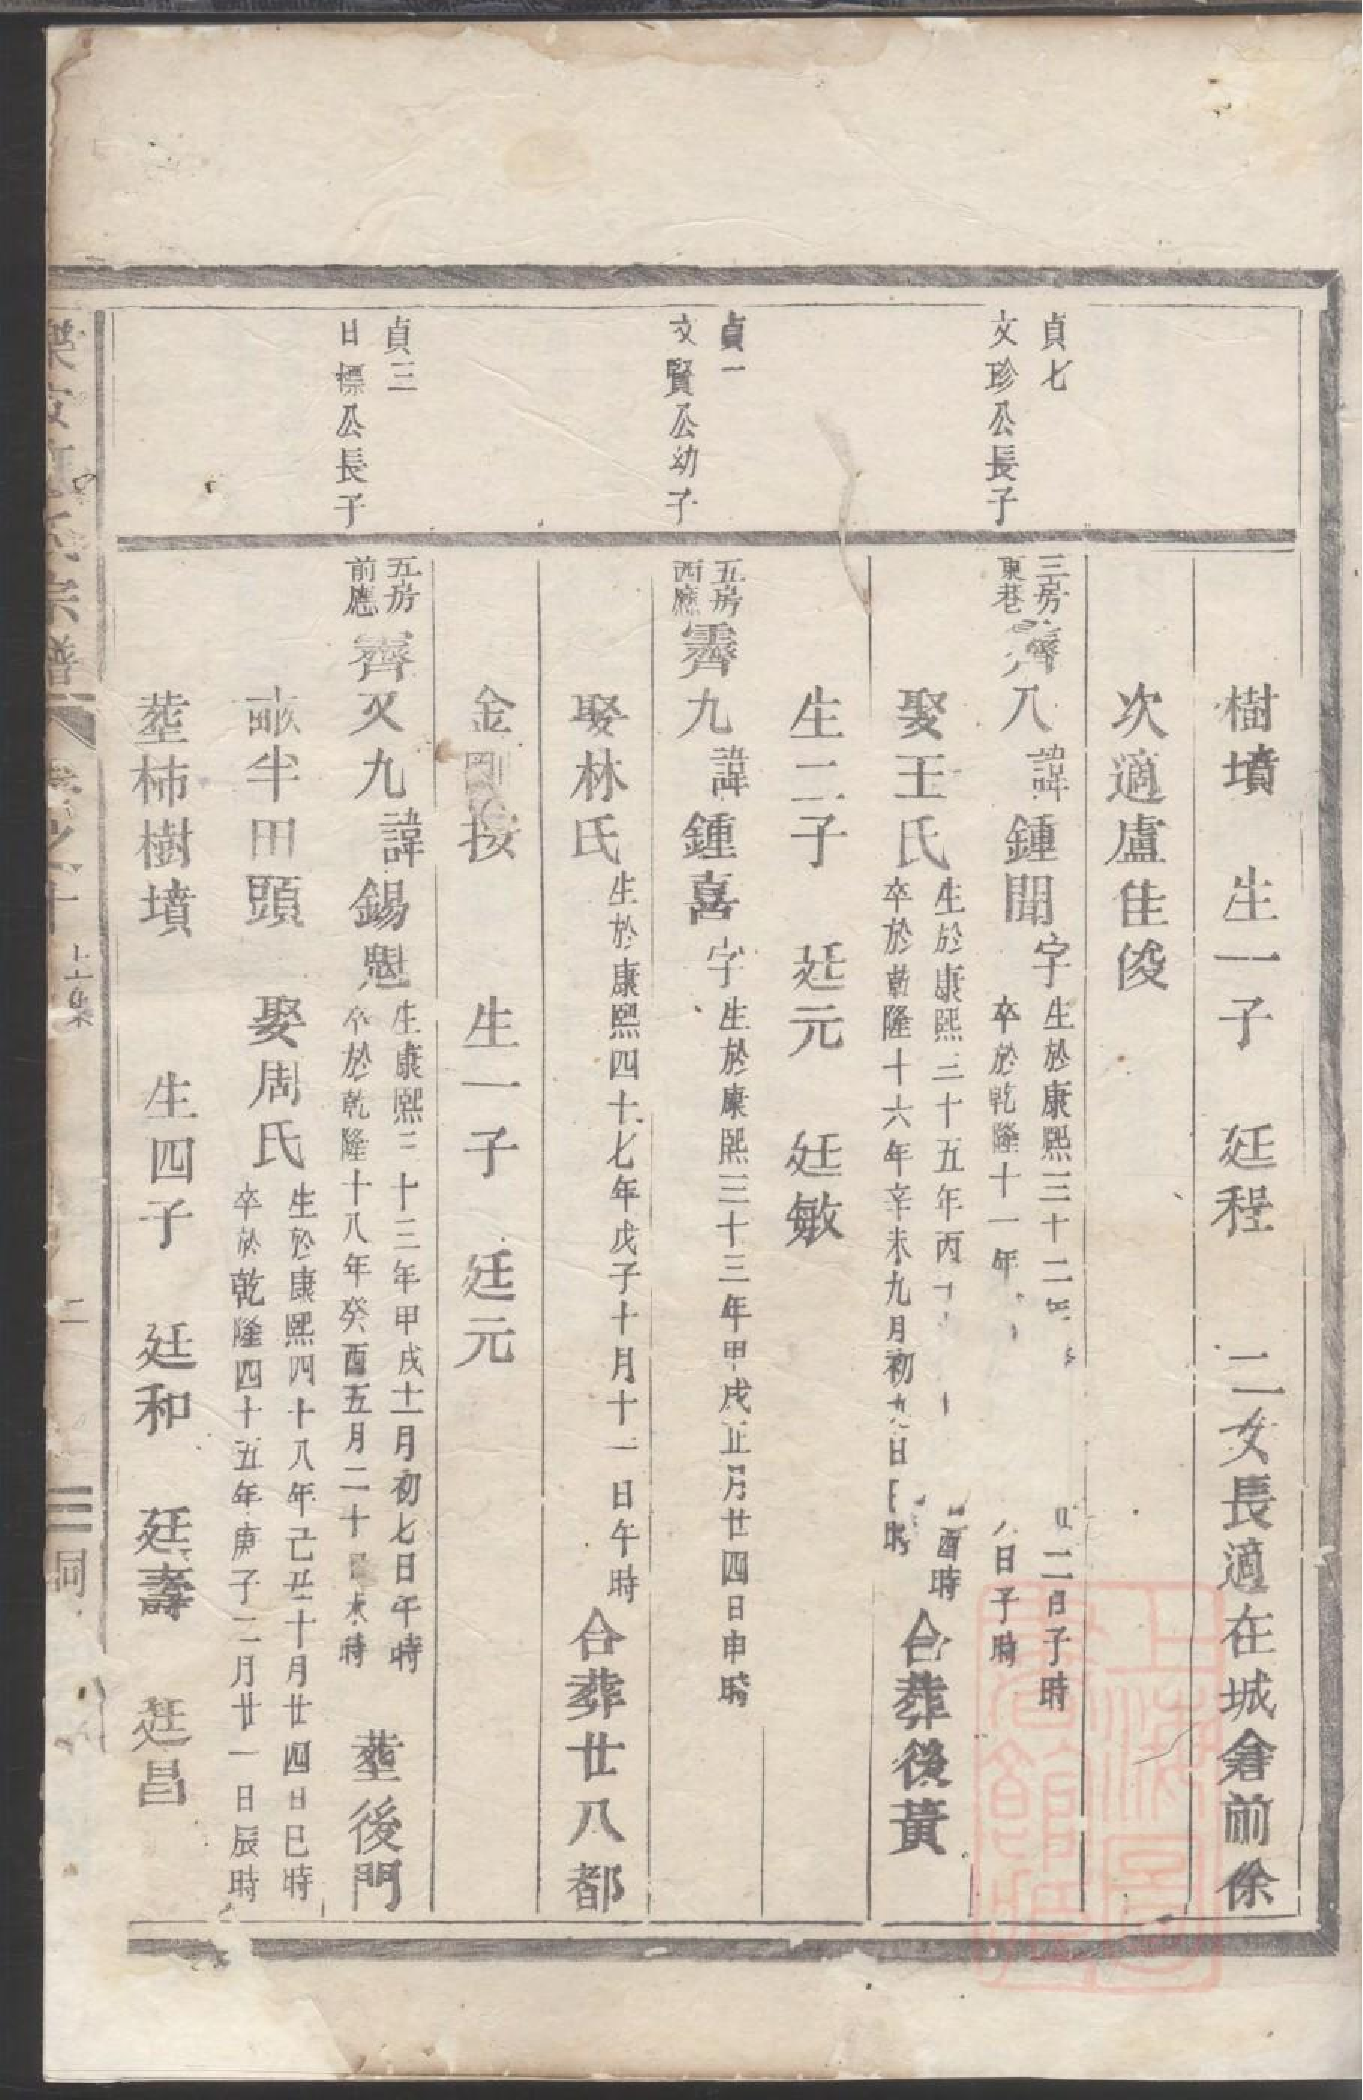 樹墳　生一子　廷程　二女長適在城倉前徐
次適盧佳俊
貞七
文珍公長子
三房
東巷
霽八　諱鍾聞　字
生於康熙三十二二日子時
卒於乾隆十一年日子時
娶王氏
生於康熙三十五年丙酉時
卒於乾隆十六年辛未九月初九日時
合葬後黃
生二子　廷元　廷敏
貞一
文賢公幼子
五房
西應
霽九　諱鍾喜　字
生於康熙三十三年甲戌正月廿四日申時
娶林氏
生於康熙四十七年戊子十月十一日午時
合葬廿八都
金剛按　生一子　廷元
貞三
日標公長子
五房
前應
霽又九　諱錫魁
生康熙三十三年甲戌十一月初七日午時
卒於乾隆十八年癸酉五月二十日未時
塟後門
畝半田頭　娶周氏
生於康熙四十八年己丑十月廿四日巳時
卒於乾隆四十五年庚子二月廿一日辰時
塟柿樹墳　生四子　廷和　廷壽　廷昌
宗譜　卷之十　上集　二